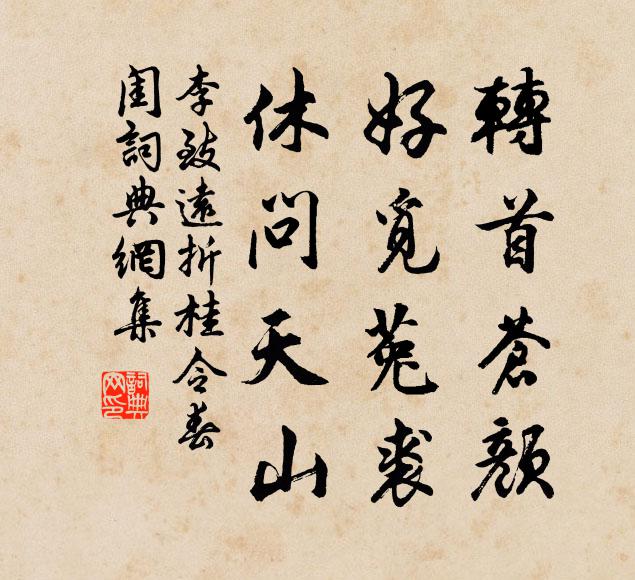 轉首蒼顏
好覓菟裘
休問天山
李致遠折桂令春
閨詞典網集
詞典
网印